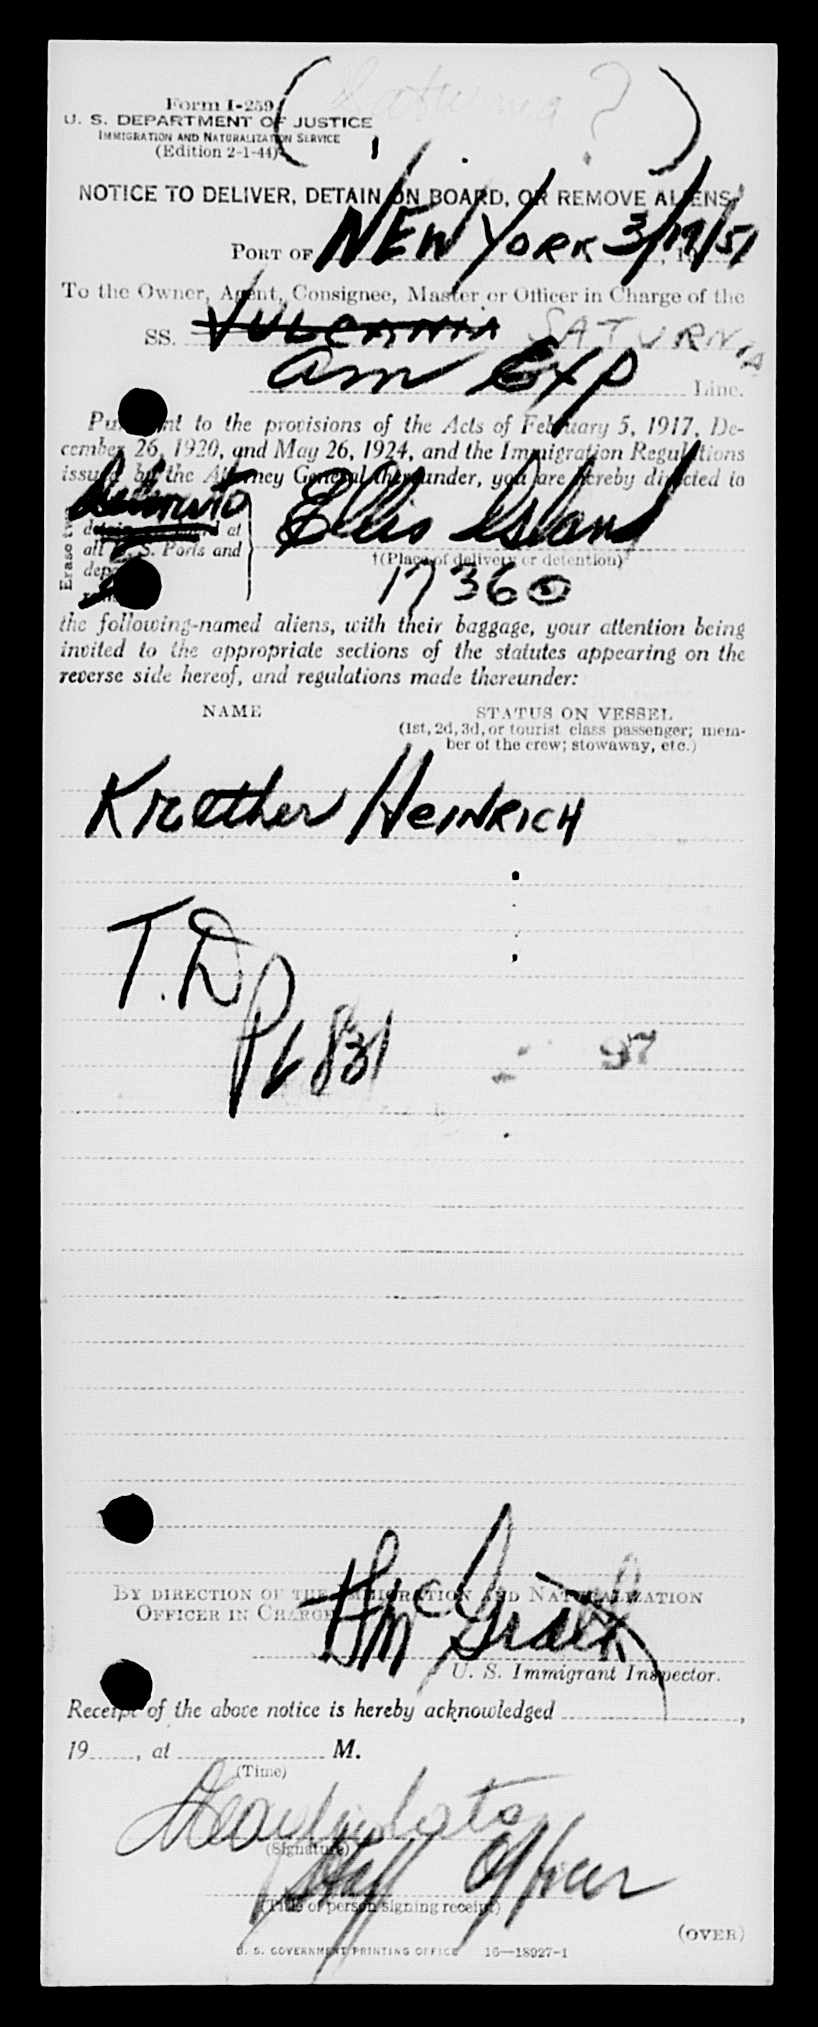 (Saturnia ?)
Form I-259
U. S. DEPARTMENT OF JUSTICE
IMMIGRATION AND NATURALIZATION SERVICE
(Edition 2-1-44)
NOTICE TO DELIVER, DETAIN ON BOARD, OR REMOVE ALIENS
PORT OF NEW YORK 3/19/51, 19
To the Owner, Agent, Consignee, Master or Officer in Charge of the
SS. VULCANIA SATURNIA
Am Exp Line.
Pursuant to the provisions of the Acts of February 5, 1917, De-
cember 26, 1920, and May 26, 1924, and the Immigration Regulations
issued by the Attorney General thereunder, you are hereby directed to
Erase two
detain on board at
all U. S. Ports and
Ellis Island
†(Place of delivery or detention)
17360
the following-named aliens, with their baggage, your attention being
invited to the appropriate sections of the statutes appearing on the
reverse side hereof, and regulations made thereunder:
NAME STATUS ON VESSEL
(1st, 2d, 3d, or tourist class passenger; mem-
ber of the crew; stowaway, etc.)
Kræther HEINRICH
T.D
831
97
BY DIRECTION OF THE IMMIGRATION AND NATURALIZATION
OFFICER IN CHARGE
McGrath
U. S. Immigrant Inspector.
Receipt of the above notice is hereby acknowledged ,
19 , at M.
(Time)
(Signature)
Staff Officer
(Title of person signing receipt)
(OVER)
U. S. GOVERNMENT PRINTING OFFICE 16—18927-1